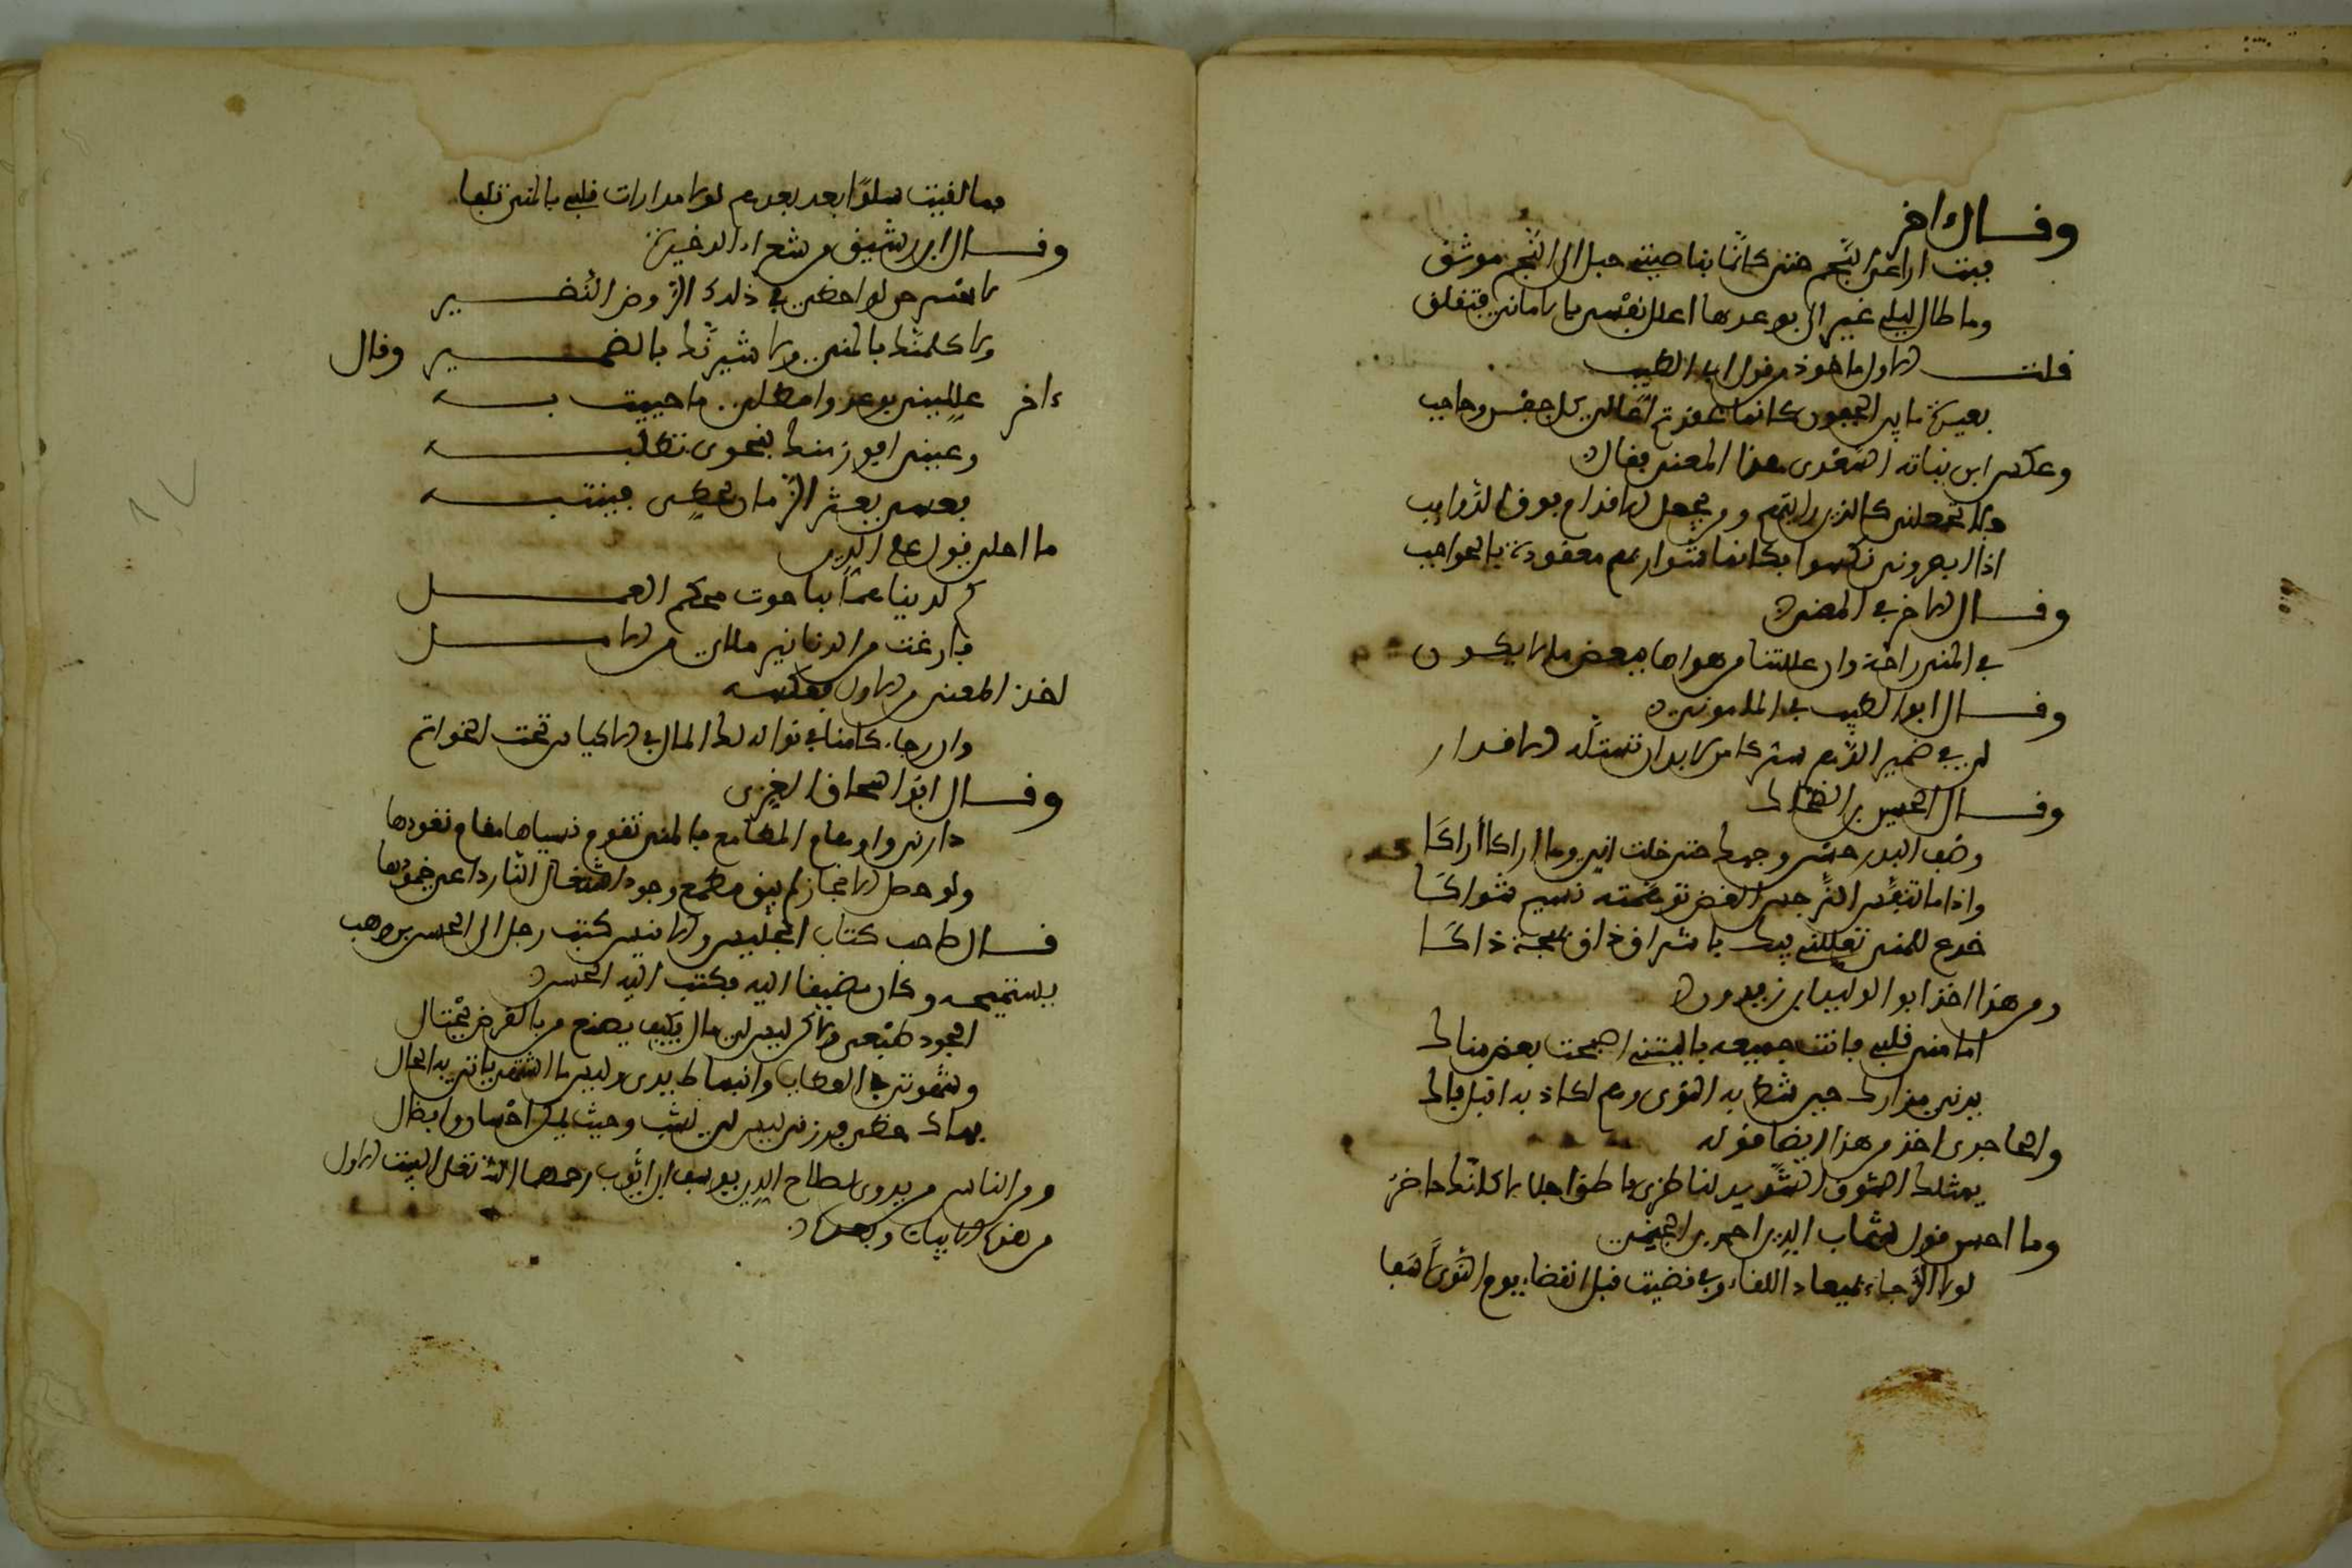 وقال اخر
فبت اراعي النجم حتى كانما بناصيتي حبل الى النجم موثق
وما طال ليلي غير اني بوعدها اعلل نفسي بالاماني فتقلق
قلت الاول ماخوذ من قول ابي الطيب
بعيدة ما بين الجفون كانما عقدتم اعالي كل جفن وحاجب
وعكس ابن نباته السعدي هذا المعنى فقال
ولا تجعلني كالذين رايتهم ومن يجعل الاقدام فوق الذوايب
اذا ابصروني نكسوا فكانما شواربهم معقودة بالحواجب
وقال الاخر في المعنى
في المنى راحة وان عللتنا من هواها ببعض ما لا يكون
وقال ابو الطيب في المامونى
لي في ضمير الدهر سر كامن لا بد ان تستله الاقدار
وقال الحسين بن الضحاك
وصف البدر حسن وجهك حتى خلت اني وما اراك أراكا
واذا ما تنفس النرجس الغض توهمته نسيم شذاكا
خدع للمنى تعللني فيك باشراق ذا وبهجة ذاكا
ومن هذا اخذ ابو الوليد ابن زيدون
اما منى قلبي فانت جميعه ياليتني اصبحت بعض مناك
يدني مزارك حين شط به النوى وهم اكاد به اقبل فاك
والحاجري اخذ من هذا ايضا قوله
يمثلك الشوق الشديد لناظري فاطرق اجلالا كانك حاضر
وما احسن قول شهاب الدين احمد بن الخيمي
لولا الرجاء بميعاد اللقاء وبي قضيت قبل انقضاء يوم النوى اسفا
فما لقيت سلوا بعد بعدهم لولا مدارات قلبي بالمنى تلفا
وقال ابن رشيق من شعراء الذخيرة
لا انس حين لواحظي في ذلك الروض النضير
ولا كلمتك بالمنى ولا شيرتك بالضمير وقال
ءاخر علليني بوعد وامطلي ما حييت به
وعيني افوز منك بنجوى تطلبه
فعسى يعثر الزمان بحظي فينتبه
ما احلى قول علم الدين
كم لدينا عمدا بياحوت محكم العمل
فارغت من الدنانير ملاى من الامل
اخذ المعنى من الاول فعكسه
وان رجاء كامنا في نواله لكالمال في الاكياس تحت الخواتم
وقال ابو اسحاق الغزي
دارني واو مقام المطامع بالمنى تقوم نسياها مقام نقودها
ولو حصل الانجاز لم يبق مطمع وجود اشتعال النار داعي خمودها
قال صاحب كتاب الجليس والانيس كتب رجل الى الحسن بن وهب
يستميحه وكان مضيقا اليه فكتب اليه الحسن
الجود طبعي ولاكن ليس لي مال فكيف يصنع من بالقرض يحتال
وشهوتي في العطايا وانبساط يدي وليس ما اشتهي ياتي به الحال
فهاك حظي فدرني ليس لي نشب وحيث يمكن احسان وافضال
ومن الناس من يروى لصلاح الدين يوسف ابن ايوب رحمها الله تعلى البيت الاول
من هذه الابيات وبعده